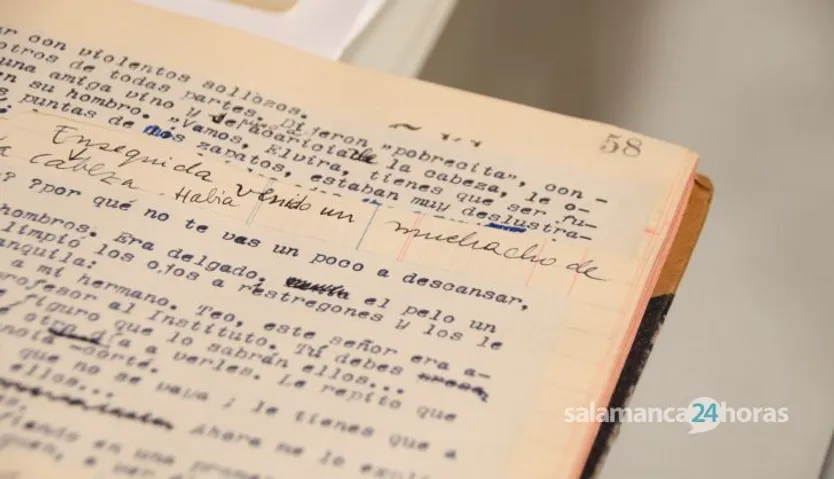 58
ar con violentos sollozos.
otros de todas partes. Dijeron "pobrecita", con-
una amiga vino y de la cabeza, le o-
en su hombro. "Vamos, Elvira, tienes que ser fu-
puntas de mis zapatos, estaban muy deslustra-
Enseguida vino un muchacho de
la cabeza. Había
? ?por qué no te vas un poco a descansar,
hombros. Era delgado. el pelo un
limpió los ojos a restregones y los le
anquila:
a mi hermano. Teo, este señor era a-
profesor al Instituto. Tú debes
figuro que lo sabrán ellos...
otro día a verles. Le repito que
-corté.
que no se vaya ; le tienes que a
ellos...
Ahora me lo
en una
salamanca24horas